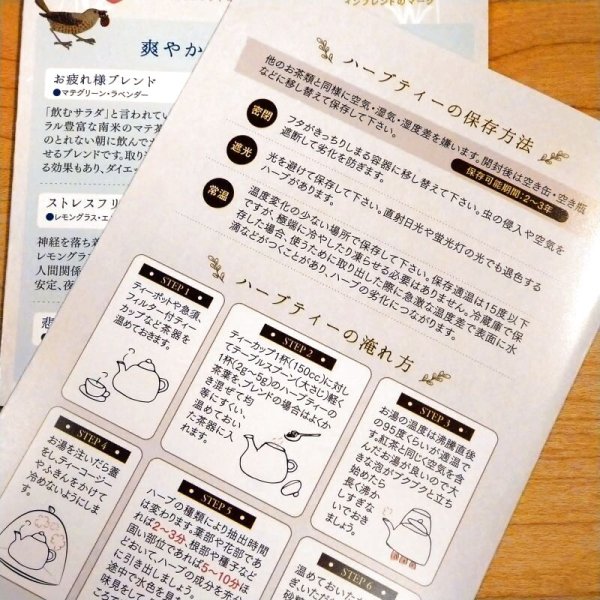 インフレンドのマーク
爽やか
お疲れ様ブレンド
●マテグリーン・ラベンダー
「飲むサラダ」と言われてい
ラル豊富な南米のマテ茶
のとれない朝に飲んで
せるブレンドです。取り
る効果もあり、ダイエッ
ストレスフリ
●レモングラス・エ
神経を落ち
レモングラ
人間関係
安定、夜
ハーブティーの保存方法
他のお茶類と同様に空気・湿気・湿度差を嫌います。開封後は空き缶・空き瓶
などに移し替えて保存して下さい。
保存可能期間:2〜3年
密閉
フタがきっちりしまる容器に移し替えて下さい。虫の侵入や空気を
遮断して劣化を防ぎます。
遮光
光を避けて保存して下さい。直射日光や蛍光灯の光でも退色する
ハーブがあります。
常温
温度変化の少ない場所で保存して下さい。保存適温は15度以下
ですが、極端に冷やしたり凍らせる必要はありません。冷蔵庫で保
存した場合、使うために取り出した際に急激な温度差で表面に水
滴などがつくことがあり、ハーブの劣化につながります。
ハーブティーの淹れ方
STEP 1
ティーポットや急須、
フィルター付ティー
カップなど茶器を
温めておきます。
STEP 2
ティーカップ1杯(150cc)に対し
てテーブルスプーン(大さじ)軽く
1杯(2g〜3g)のハーブティーの
茶葉を、ブレンドの場合はよくか
き混ぜて均
等にすくい、
温めておい
た茶器に入
れます。
STEP 3
お湯の温度は沸騰直後
の95度くらいが適温で
す。紅茶と同じく空気を含
んだお湯が良いので大
きな泡がブクブクと立ち
始めたら
長く沸か
しすぎな
いでおき
ましょう。
STEP 4
お湯を注いだら蓋
をしティーコージー
やふきんをかけて
冷めないようにしま
す。
STEP 5
ハーブの種類により抽出時間
は変わります。葉部や花部であ
れば2〜3分、根部や種子など
固い部位であれば5〜10分ほ
どおいて、ハーブの成分を充分
に引き出しましょう。
途中で水色を見
味見をして
ころで
STEP 6
温めておいた
ぎ、いただ
砂糖